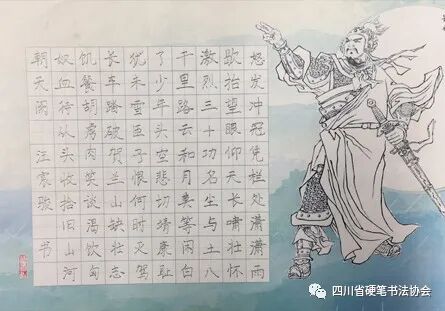 怒发冲冠凭栏处潇潇雨
歇抬望眼仰天长啸壮怀
激烈三十功名尘与土八
千里路云和月莫等闲白
了少年头空悲切靖康耻
犹未雪臣子恨何时灭驾
长车踏破贺兰山缺壮志
饥餐胡虏肉笑谈渴饮匈
奴血待从头收拾旧山河
朝天阙 汪宸骏 书
四川省硬笔书法协会